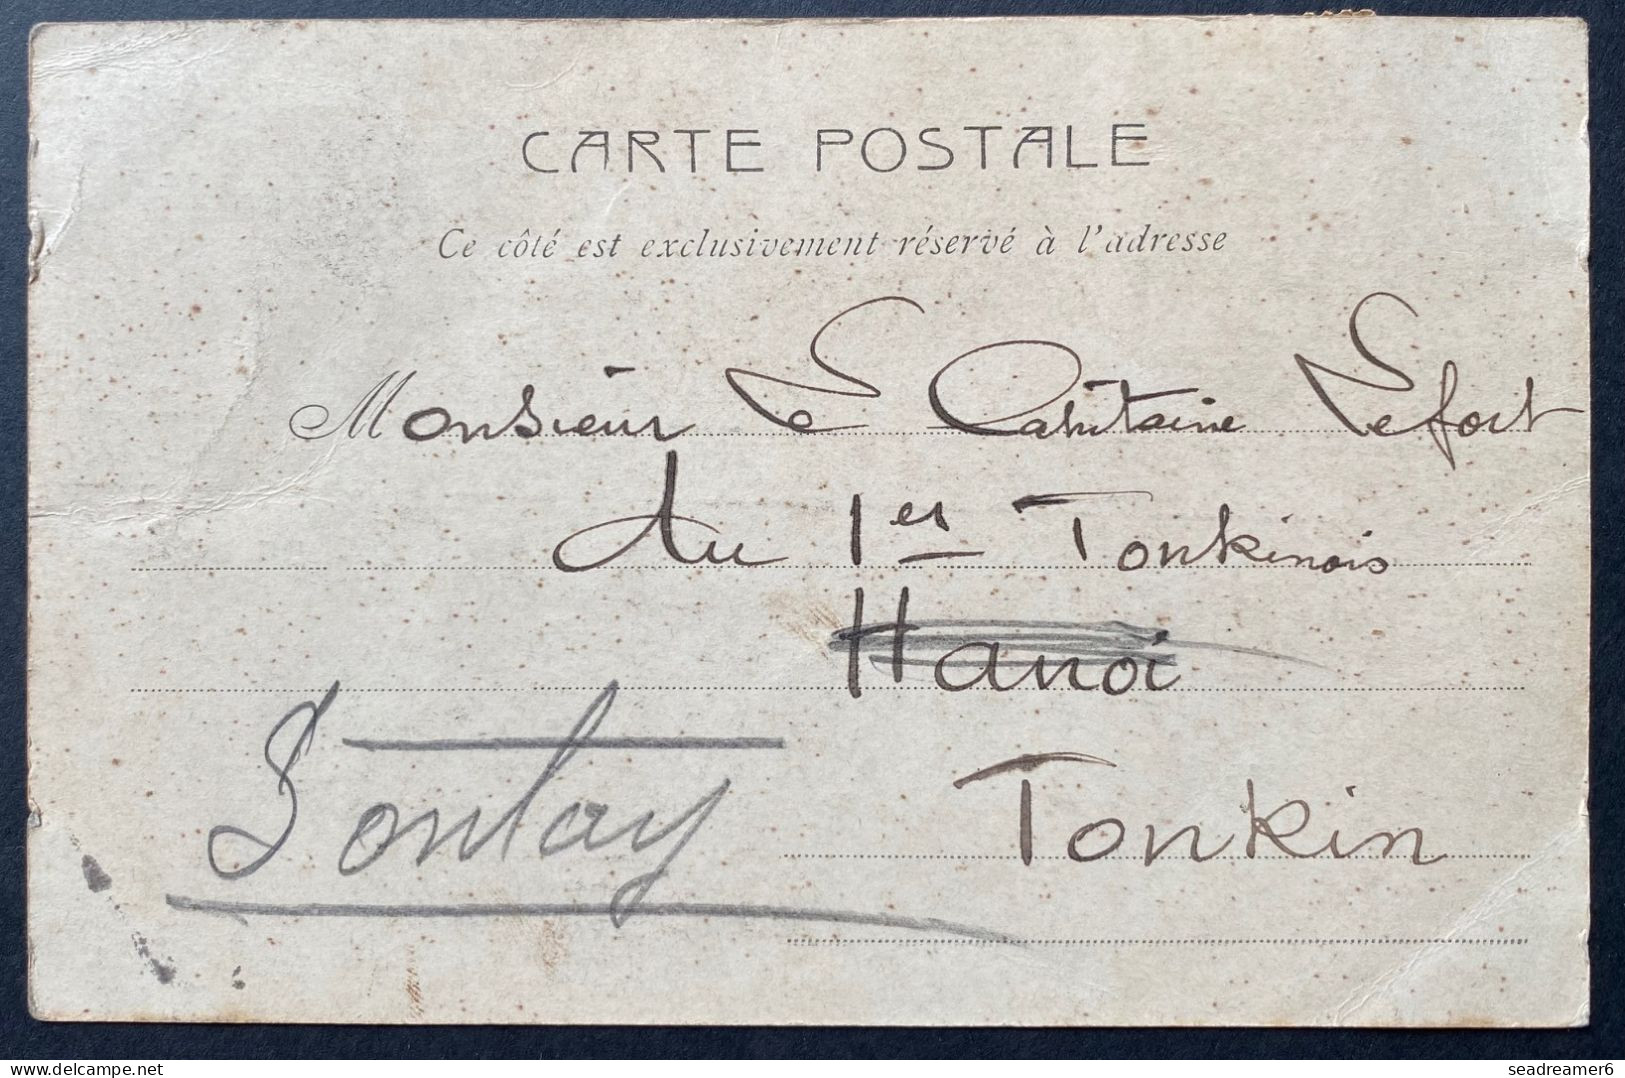 CARTE POSTALE
Ce côté est exclusivement réservé à l'adresse
Monsieur Le Capitaine Lefort
du 1er Tonkinois
Hanoi
Sontay
Tonkin
seadreamer6